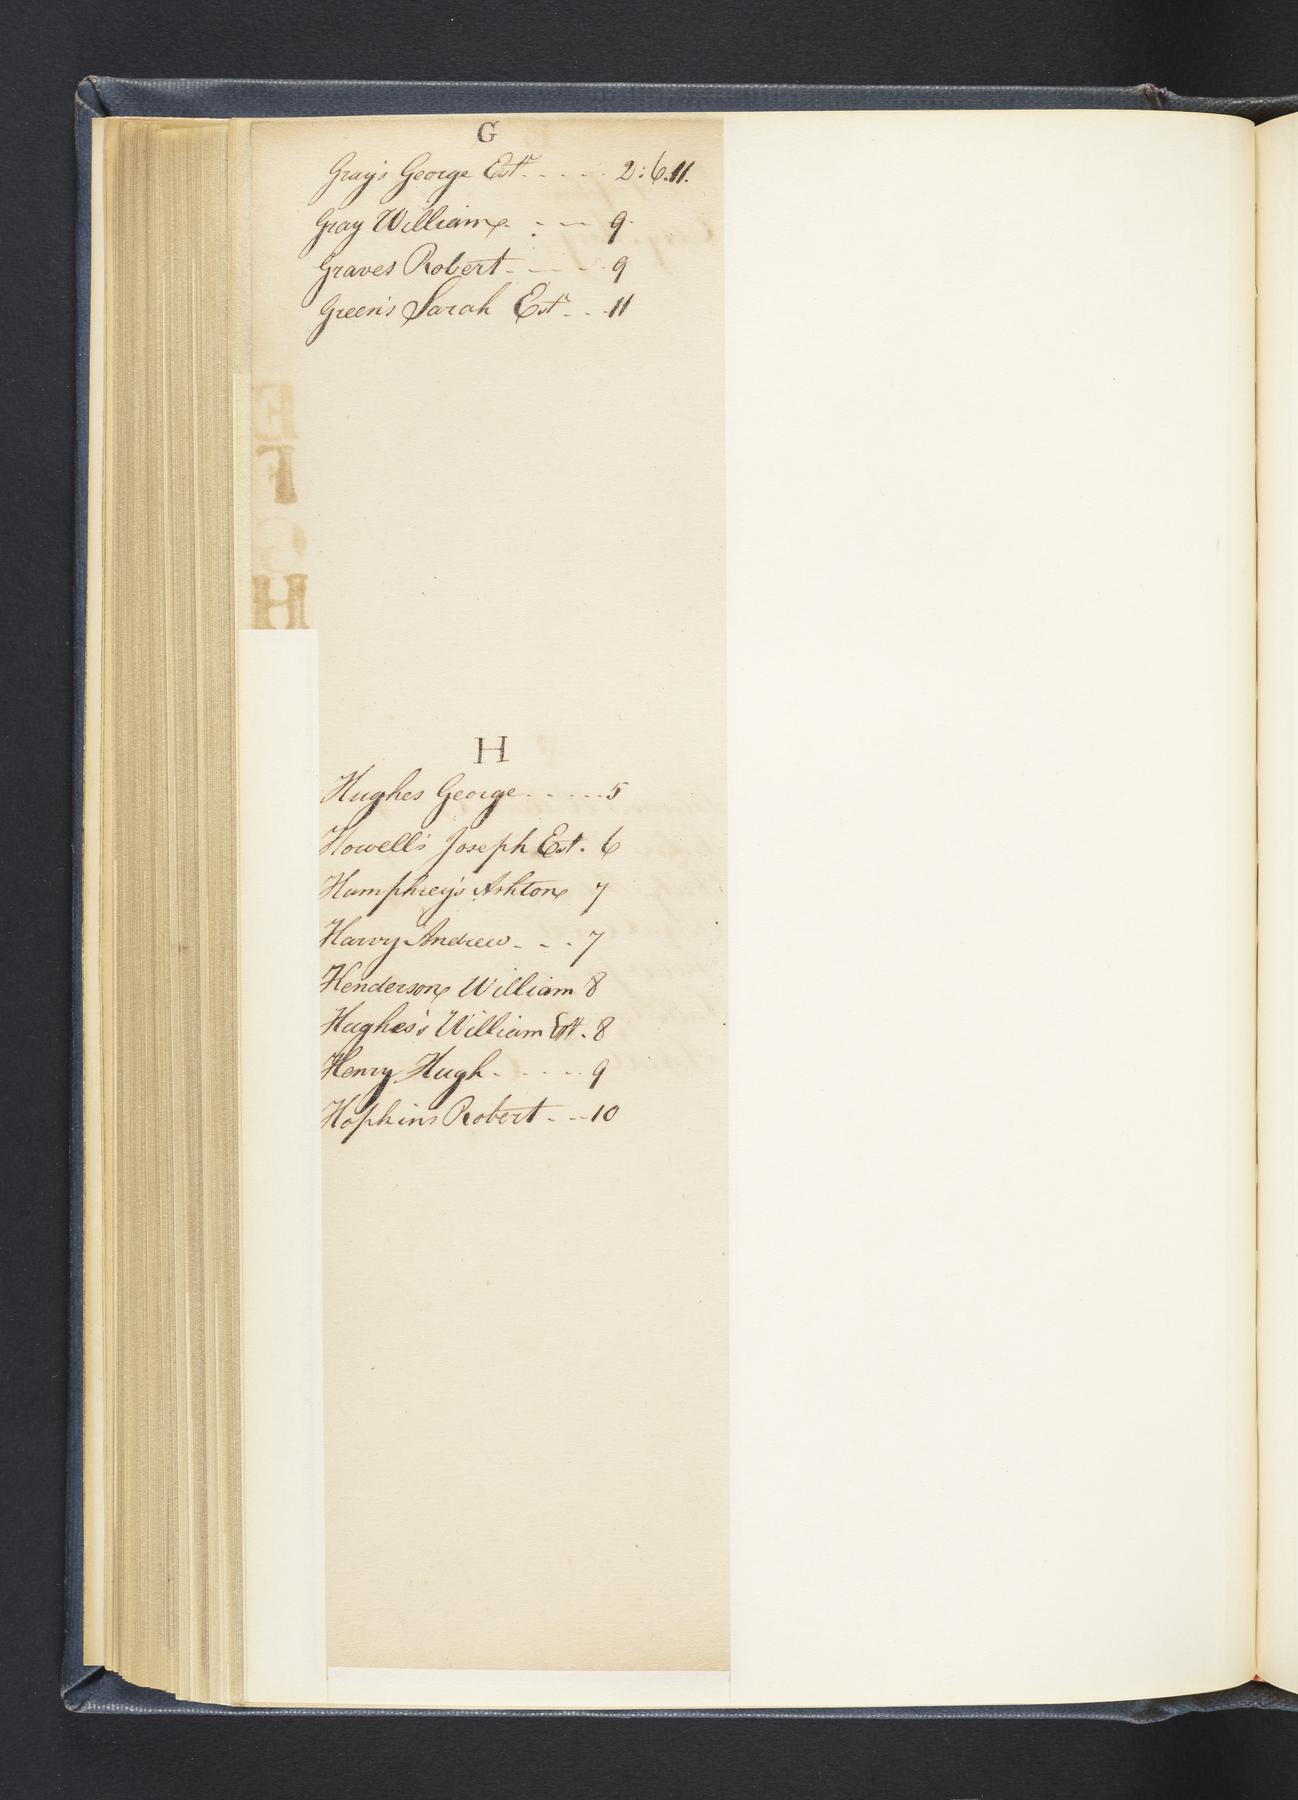 G
Gray's George Estr. - - - - 2:6.11.
Gray William - - - 9
Graves Robert - - - - 9
Green's Sarah Estr. - - 11
E
F
G
H
H
Hughes George - - - - - 5
Howell's Joseph Est. 6
Humphrey's Ashton 7
Harvy Andrew - - - 7
Henderson William 8
Hughes's William Est. 8
Henry Hugh - - - - - 9
Hopkins Robert - - - 10